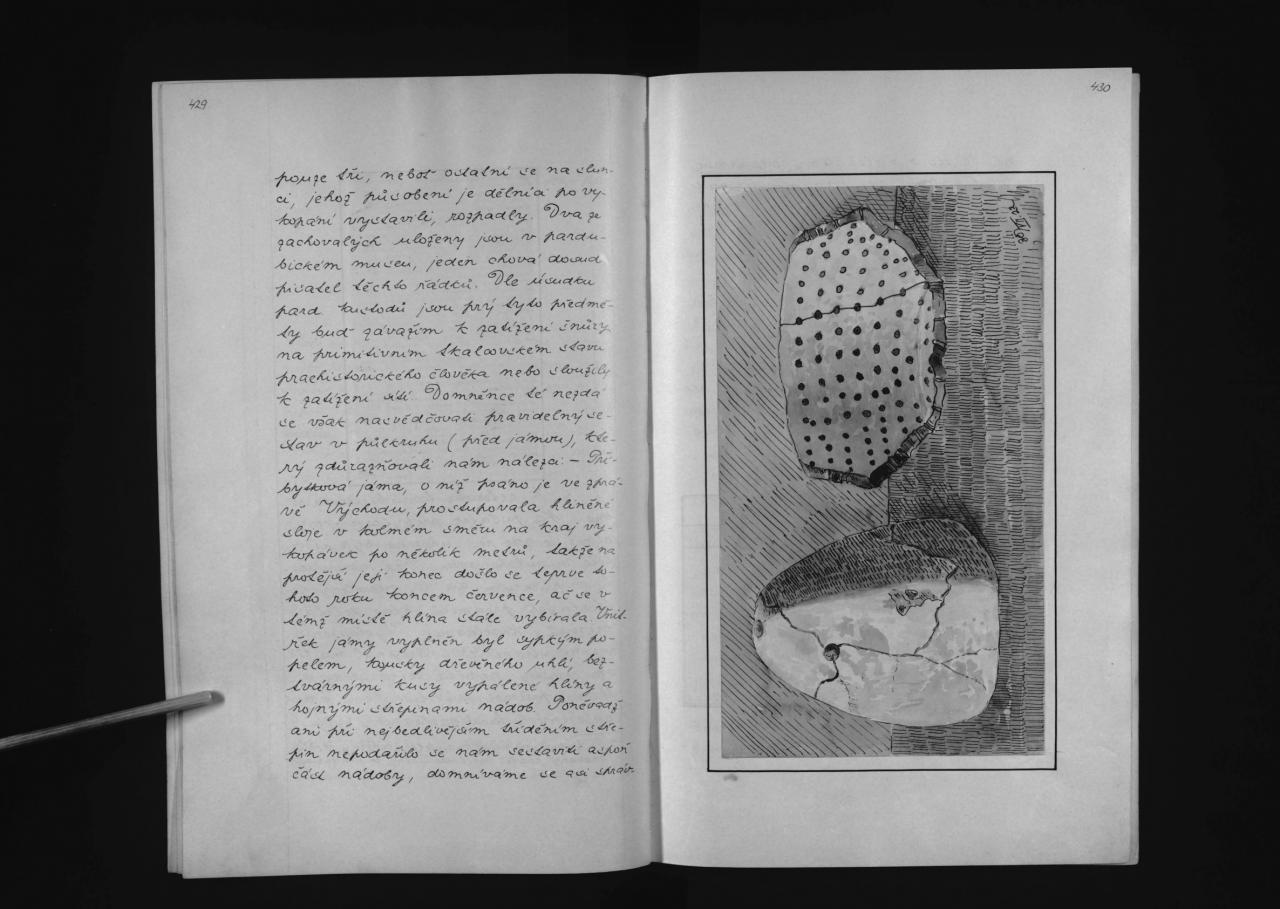 429
pouze tři, neboť ostatní se na slun-
ci, jehož působení je dělníci po vy-
kopání vystavili, rozpadly. Dva ze
zachovalých uloženy jsou v pardu-
bickém museu, jeden chová dosud
pisatel těchto řádků. Dle úsudku
pard kustodů jsou prý tyto předmě-
ty buď závažím k zatížení šňůry
na primitivním tkalcovském stavu
prachistorického člověka nebo sloužily
k zatížení sítí. Domněnce té nezdá
se však nasvědčovati pravidelný se-
stav v půlkruhu (před jámou), kte-
rý zdůrazňovali nám nálezci. – Pří-
bytková jáma, o níž psáno je ve zprá-
vě Východu, prostupovala hliněné
sloje v kolmém směru na kraj vy-
kopávek po několik metrů, takže na
protější její konec došlo se teprve to-
hoto roku koncem července, ač se v
témž místě hlína stále vybírala. Vnit-
řek jámy vyplněn byl sypkým po-
pelem, kousky dřevěného uhlí, bez-
tvárnými kusy vypálené hlíny a
hojnými střepinami nádob. Poněvadž
ani při nejbedlivějším třídění stře-
pin nepodařilo se nám sestaviti aspoň
část nádoby, domníváme se asi správ-
430